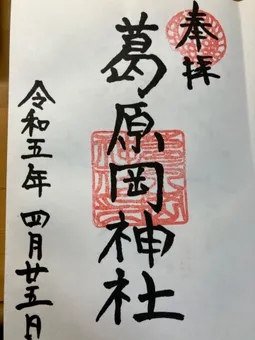 奉拝
葛原岡神社
令和五年 四月廿五日